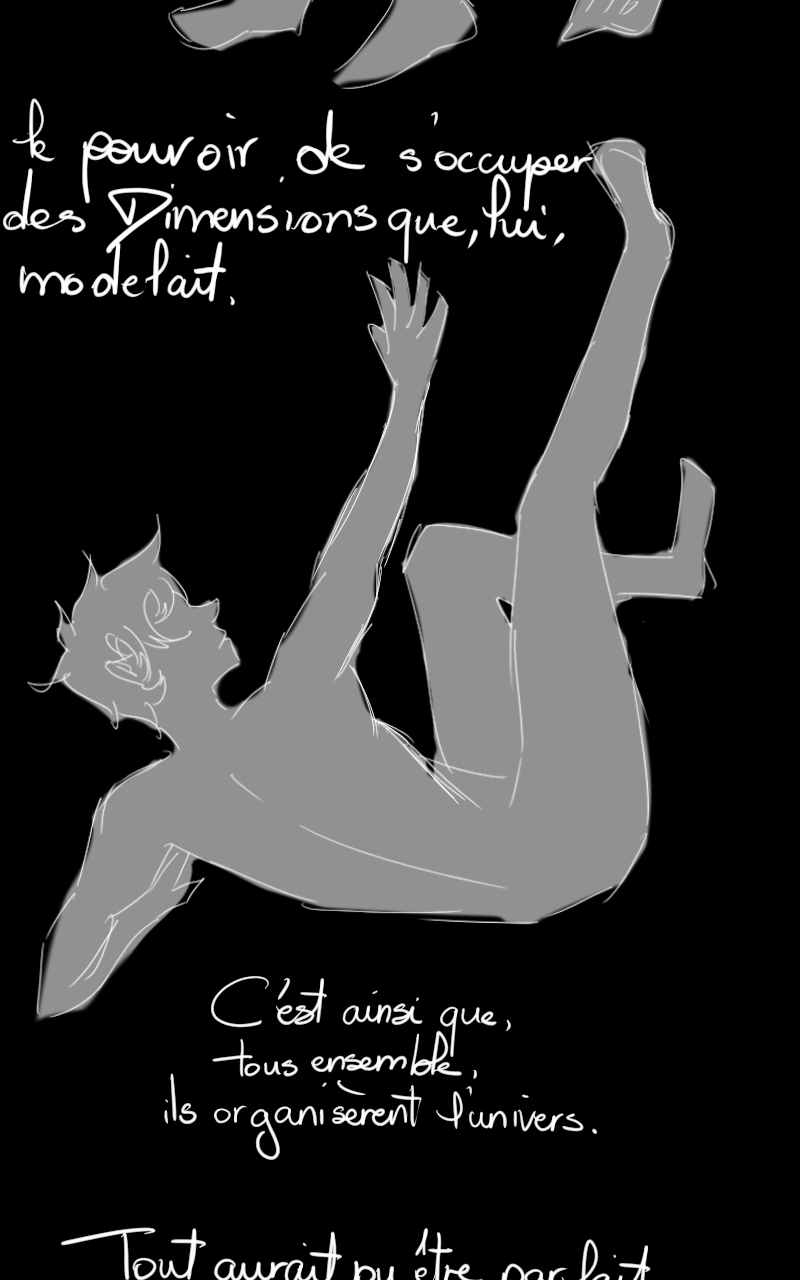 le pouvoir de s'occuper
des Dimensions que, lui,
modelait.
C'est ainsi que,
tous ensemble,
ils organisèrent l'univers.
Tout aurait pu être parfait